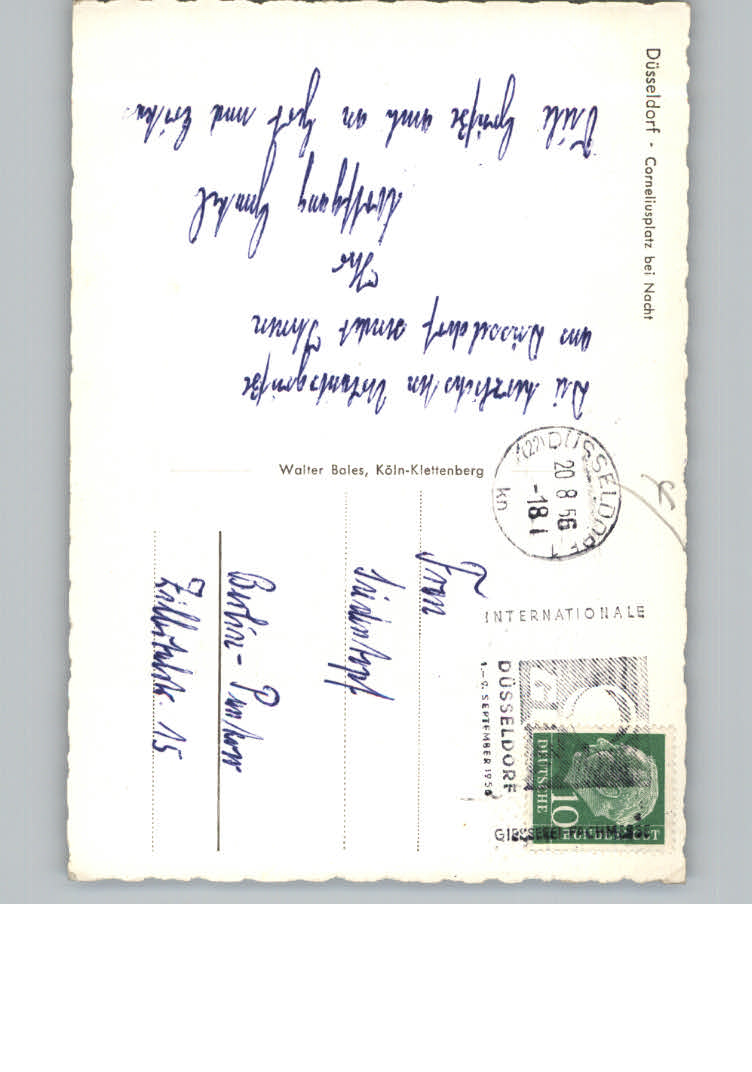 Düsseldorf - Corneliusplatz bei Nacht
Die herzlichsten Urlaubsgrüße
aus Düsseldorf sendet Ihnen
Ihr
Wolfgang
Viele Grüße auch an und Erika
Walter Bales, Köln-Klettenberg
(22) DÜSSELDORF
20 8 56
-18
kn
INTERNATIONALE
DÜSSELDORF
1.-9. SEPTEMBER 1956
GIESSEREI-FACHMESSE
DEUTSCHE
10
BUNDESPOST
Frau
Berlin-Pankow
Zillertalstr. 15